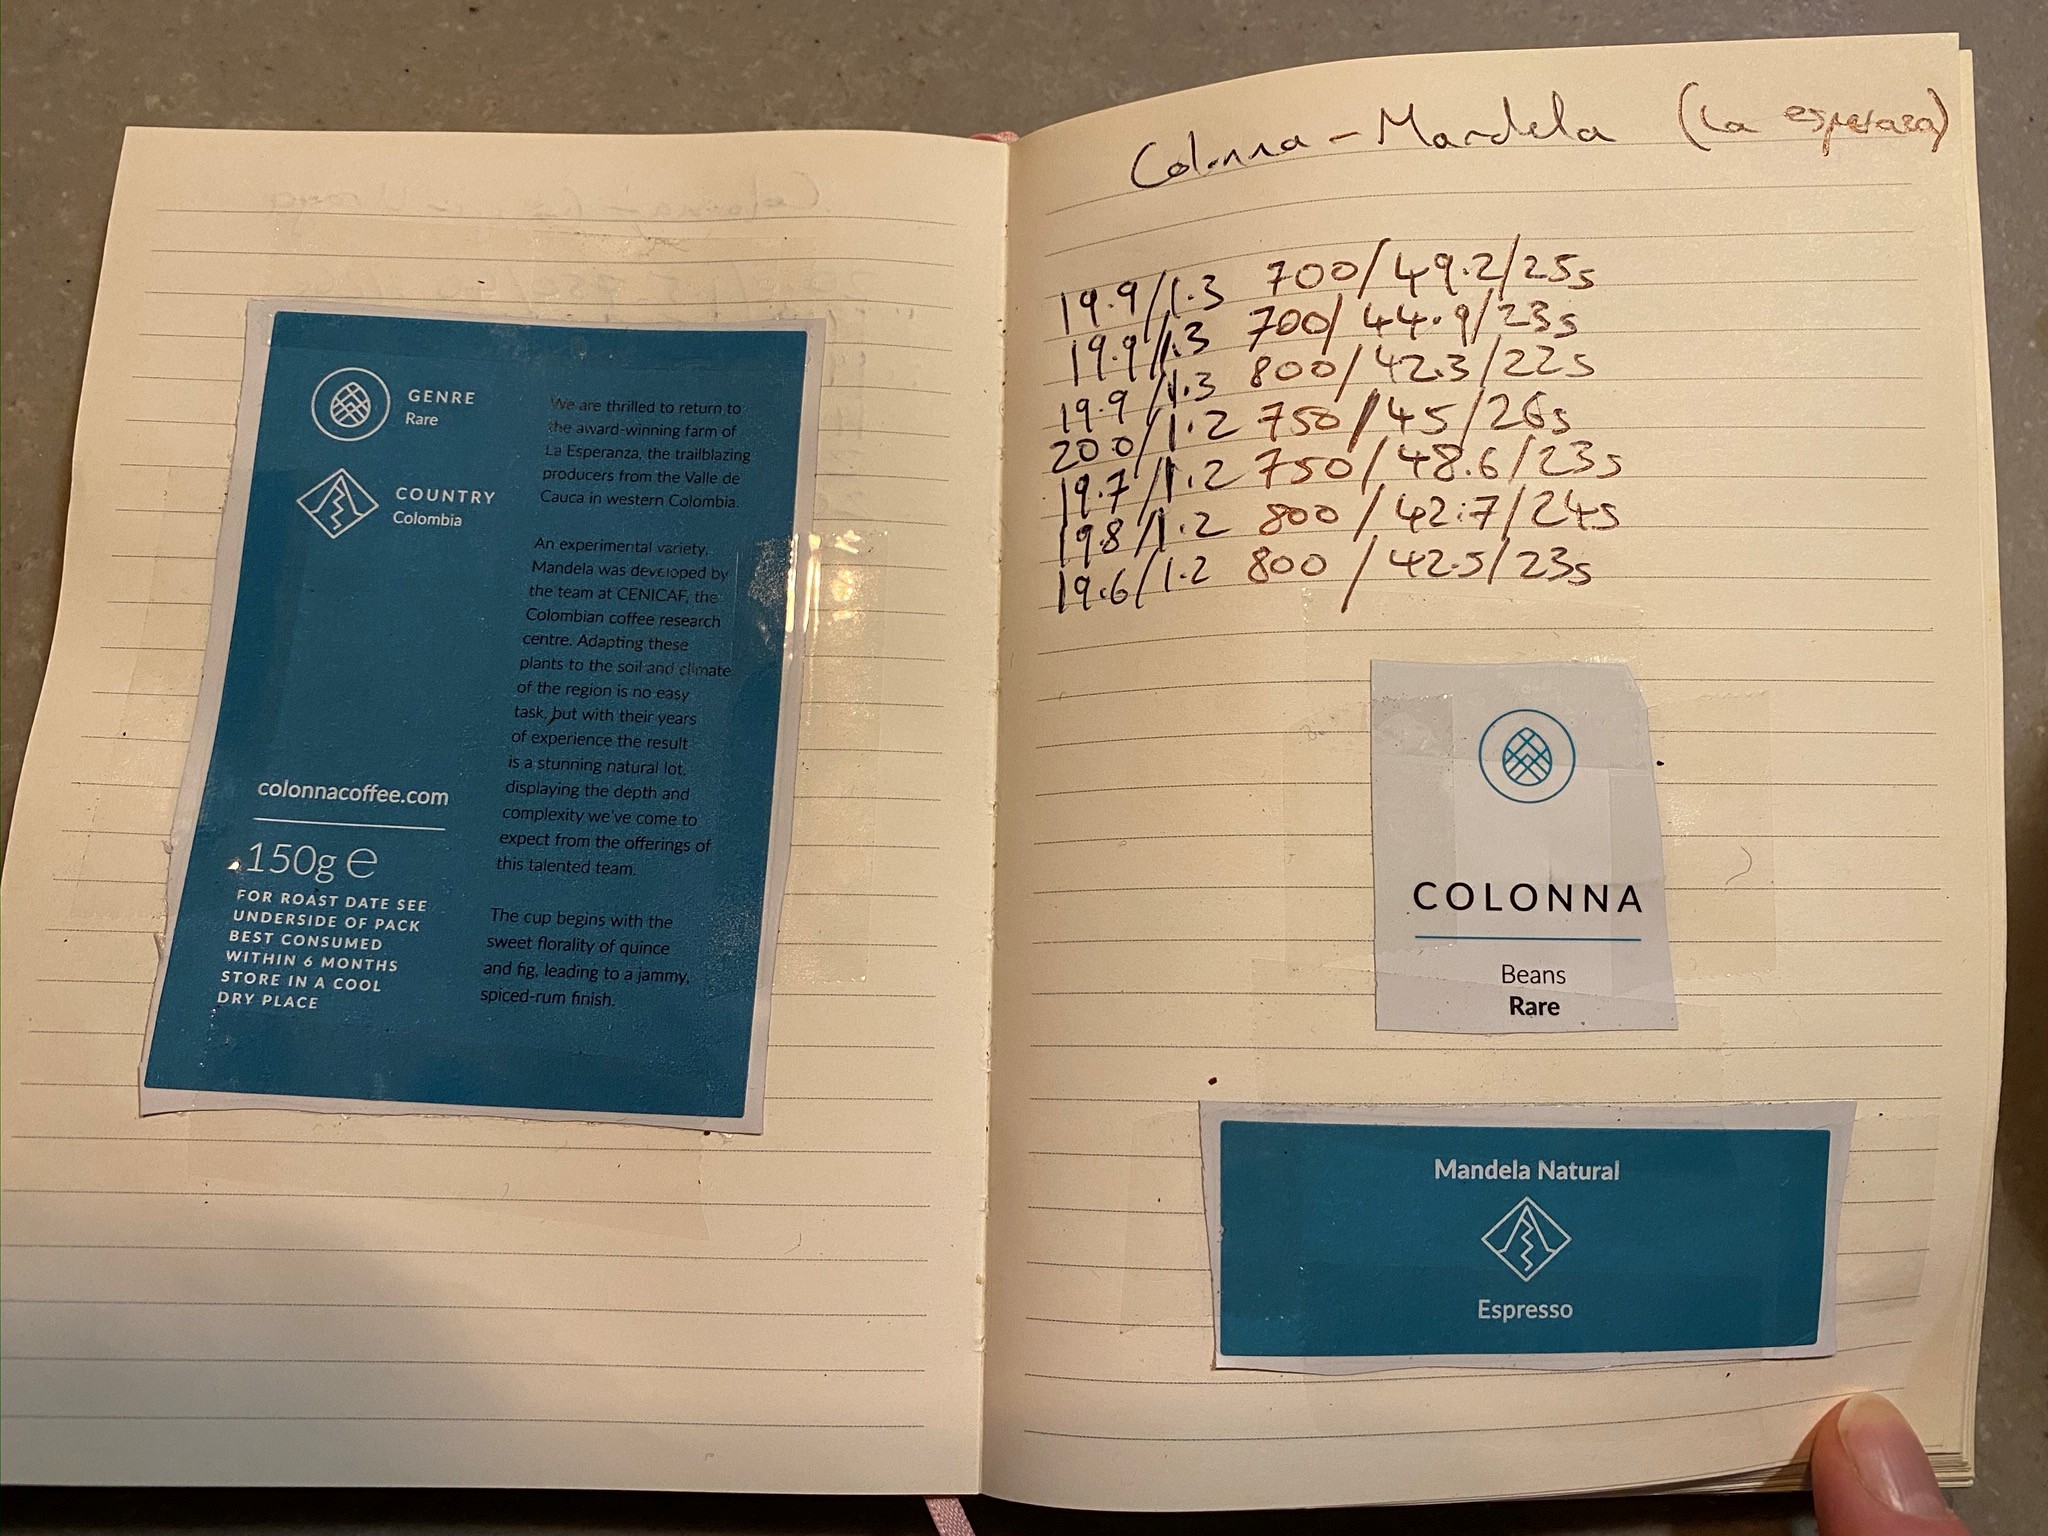 GENRE
Rare
COUNTRY
Colombia
colonnacoffee.com
150g e
FOR ROAST DATE SEE
UNDERSIDE OF PACK
BEST CONSUMED
WITHIN 6 MONTHS
STORE IN A COOL
DRY PLACE
We are thrilled to return to
the award-winning farm of
La Esperanza, the trailblazing
producers from the Valle de
Cauca in western Colombia.
An experimental variety,
Mandela was developed by
the team at CENICAF, the
Colombian coffee research
centre. Adapting these
plants to the soil and climate
of the region is no easy
task, but with their years
of experience the result
is a stunning natural lot,
displaying the depth and
complexity we've come to
expect from the offerings of
this talented team.
The cup begins with the
sweet florality of quince
and fig, leading to a jammy,
spiced-rum finish.
Colonna - Mandela (La esperaza)
19.9/1.3 700/49.2/25s
19.9/1.3 700/44.9/23s
19.9/1.3 800/42.3/22s
20.0/1.2 750/45/26s
19.7/1.2 750/48.6/23s
19.8/1.2 800/42.7/24s
19.6/1.2 800/42.5/23s
COLONNA
Beans
Rare
Mandela Natural
Espresso